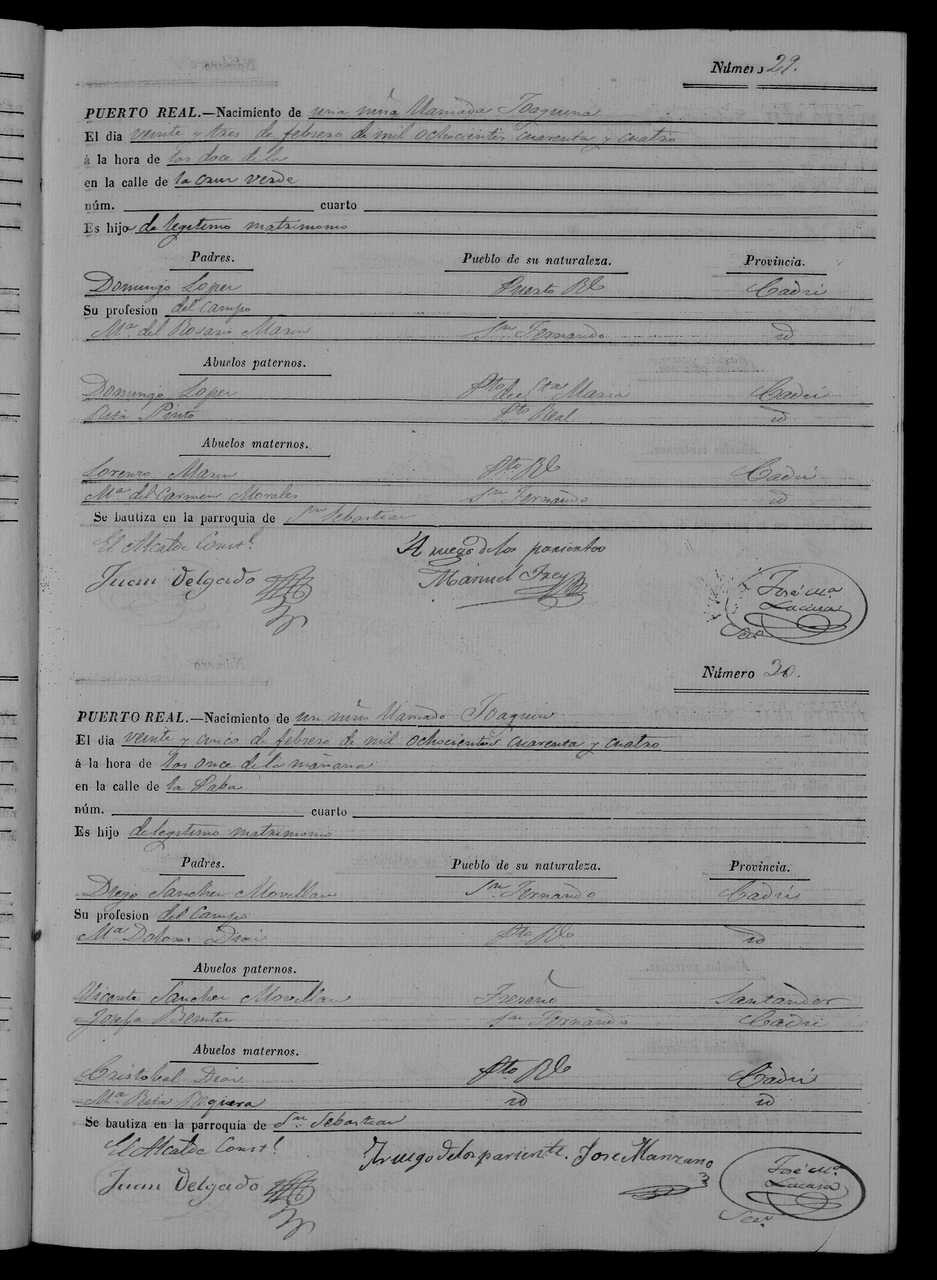 Número 29.
PUERTO REAL.—Nacimiento de una niña llamada Joaquina
El dia veinte y tres de febrero de mil ochocientos cuarenta y cuatro
á la hora de las doce de la
en la calle de la cruz verde
núm. cuarto
Es hijo de legitimo matrimonio
Padres. Pueblo de su naturaleza. Provincia.
Domingo Lopez Puerto Rl Cadiz
Su profesion del Campo
Mª del Rosario Marin Sn Fernando id
Abuelos paternos.
Domingo Lopez Pto de Sta Maria Cadiz
Rita Pinto Pto Real id
Abuelos maternos.
Lorenzo Marin Pto Rl Cadiz
Mª del Carmen Morales Sn Fernando id
Se bautiza en la parroquia de Sn Sebastian
El Alcalde Constl. A ruego de los parientes
Juan Delgado Manuel Frey
José Mª
Lacasa
Sro
Número 30.
PUERTO REAL.—Nacimiento de un niño llamado Joaquin
El dia veinte y cinco de febrero de mil ochocientos cuarenta y cuatro
á la hora de las once de la mañana
en la calle de la
núm. cuarto
Es hijo de legitimo matrimonio
Padres. Pueblo de su naturaleza. Provincia.
Diego Sanchez Movellan Sn Fernando Cadiz
Su profesion del Campo
Mª Dolores Diaz Pto Rl id
Abuelos paternos.
Vicente Sanchez Movellan Santander
Josefa Benitez Sn Fernando Cadiz
Abuelos maternos.
Cristobal Diaz Pto Rl Cadiz
Mª Rita Reguera id id
Se bautiza en la parroquia de Sn Sebastian
El Alcalde Constl. A ruego de los pariente. Jose Manzano
Juan Delgado
José Mª
Lacasa
Sro